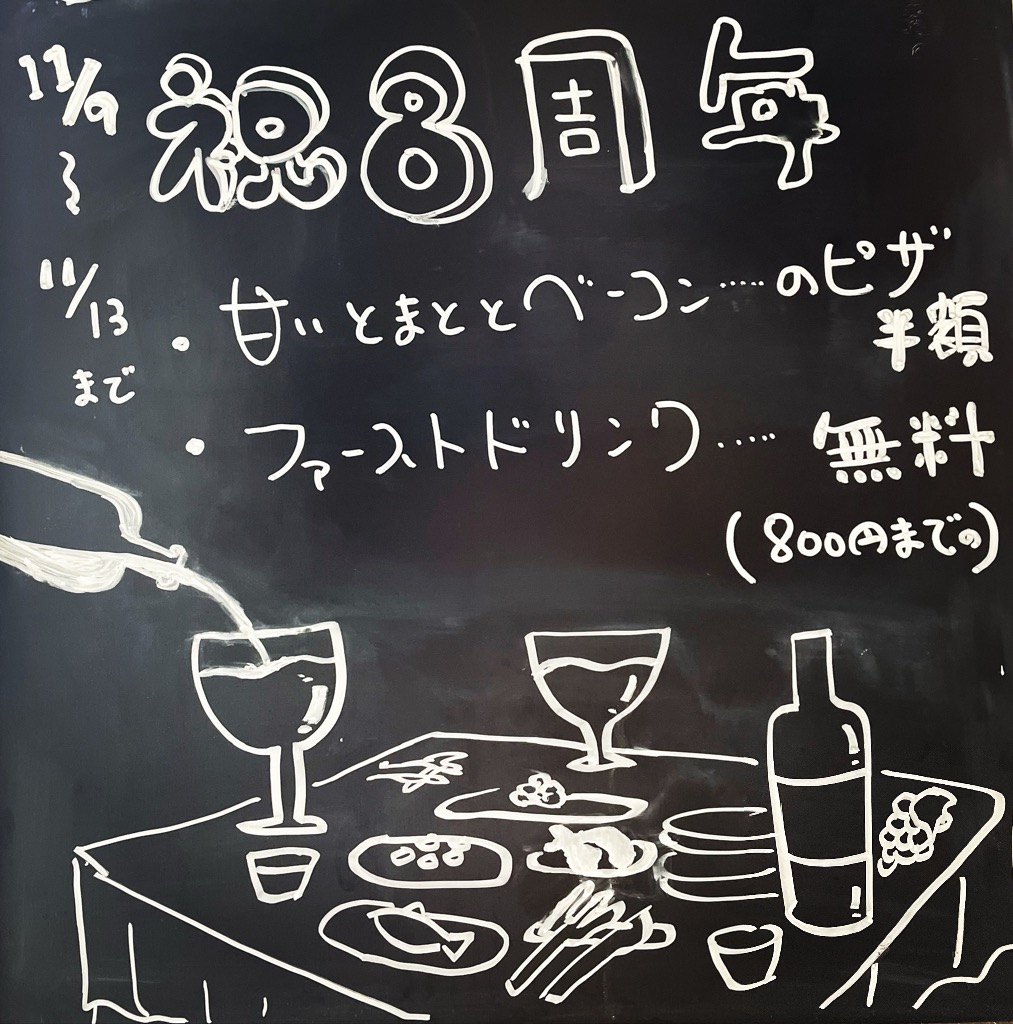 祝8周年
11/9
〜
11/13
まで
・甘いとまととベーコン……のピザ
半額
・ファーストドリンク…… 無料
(800円までの)